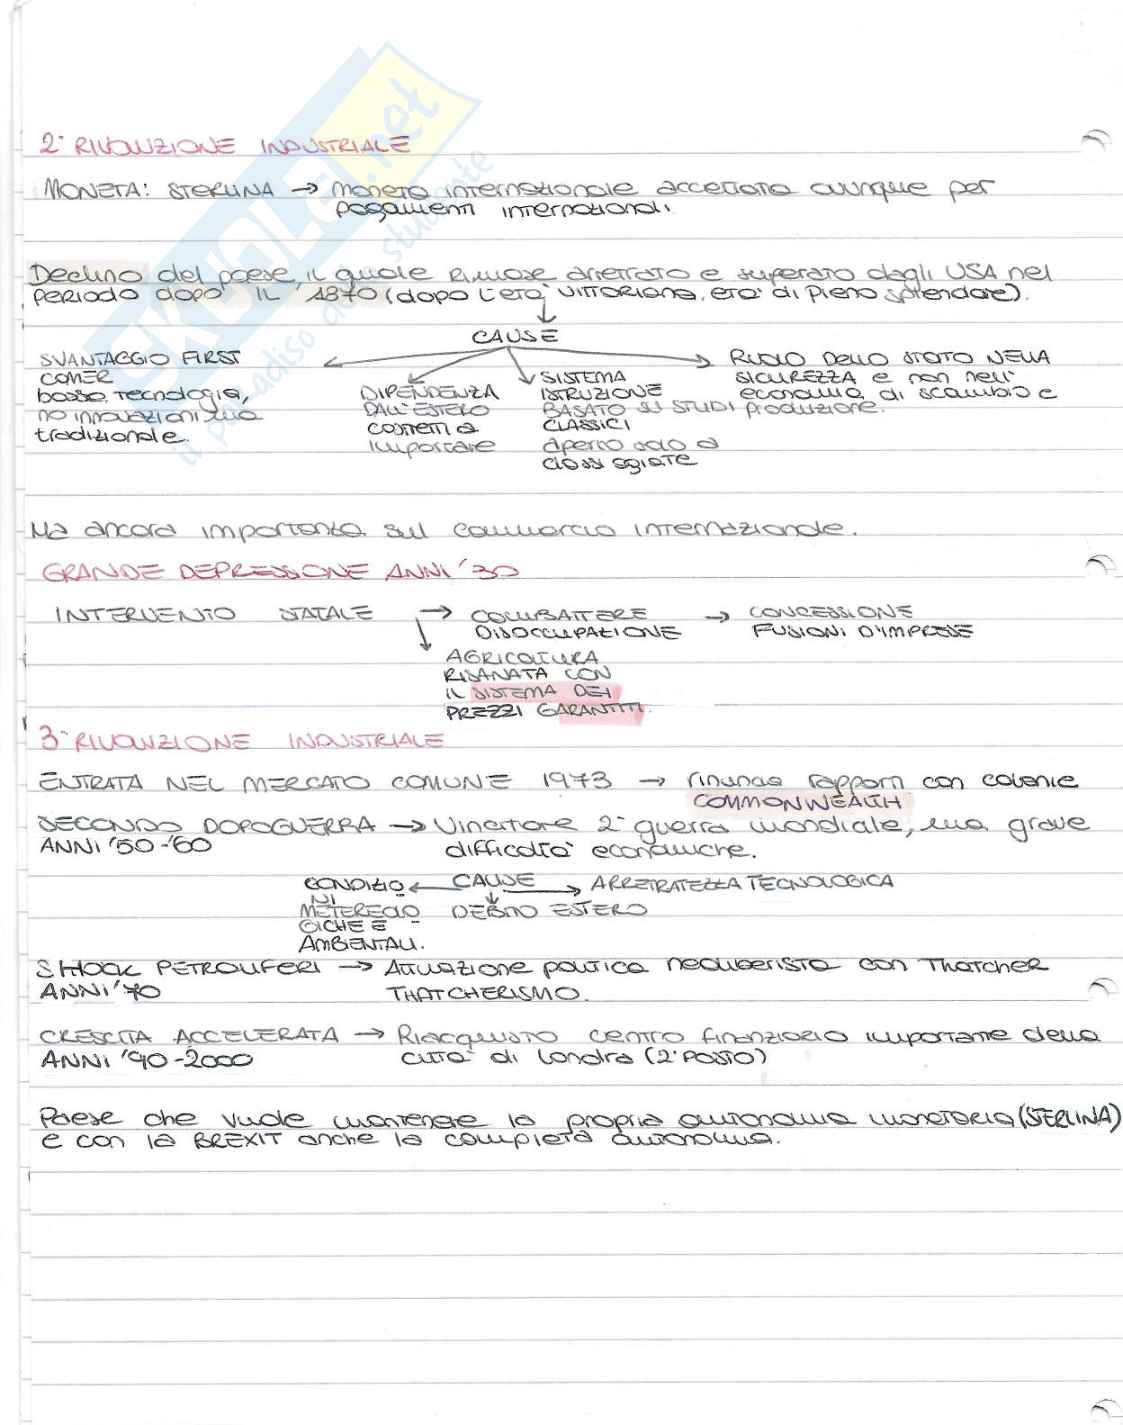 2ª RIVOLUZIONE INDUSTRIALE
MONETA: STERLINA → moneta internazionale accettata ovunque per
pagamenti internazionali.
Declino del paese, il quale rimase arretrato e superato dagli USA nel
periodo dopo il 1870 (dopo l'età vittoriana, età di pieno splendore).
CAUSE
SVANTAGGIO FIRST
COMER
bassa tecnologia,
no innovazioni ma
tradizionale.
DIPENDENZA
DALL'ESTERO
costretti a
importare
SISTEMA
ISTRUZIONE
BASATO SU STUDI
CLASSICI
aperto solo a
classi agiate
RUOLO DELLO STATO NELLA
SICUREZZA e non nell'
economia di scambio e
produzione.
Ma ancora importanza sul commercio internazionale.
GRANDE DEPRESSIONE ANNI '30
INTERVENTO STATALE → COMBATTERE → CONCESSIONE
DISOCCUPAZIONE FUSIONI D'IMPRESE
AGRICOLTURA
RISANATA CON
IL SISTEMA DEI
PREZZI GARANTITI.
3ª RIVOLUZIONE INDUSTRIALE
ENTRATA NEL MERCATO COMUNE 1973 → rinuncia rapporti con colonie
COMMONWEALTH
SECONDO DOPOGUERRA → Vincitore 2ª guerra mondiale, ma grave
ANNI '50-'60 difficoltà economiche.
CONDIZIO ← CAUSE → ARRETRATEZZA TECNOLOGICA
NI
METEREOLO DEBITO ESTERO
GICHE E
AMBIENTALI.
SHOCK PETROLIFERI → Attuazione politica neoliberista con Thatcher
ANNI '70 THATCHERISMO.
CRESCITA ACCELERATA → Riacquisto centro finanziario importante della
ANNI '90-2000 città di Londra (2º posto)
Paese che vuole mantenere la propria autonomia monetaria (STERLINA)
e con la BREXIT anche la completa autonomia.
SKUOLA.net
il paradiso dello studente